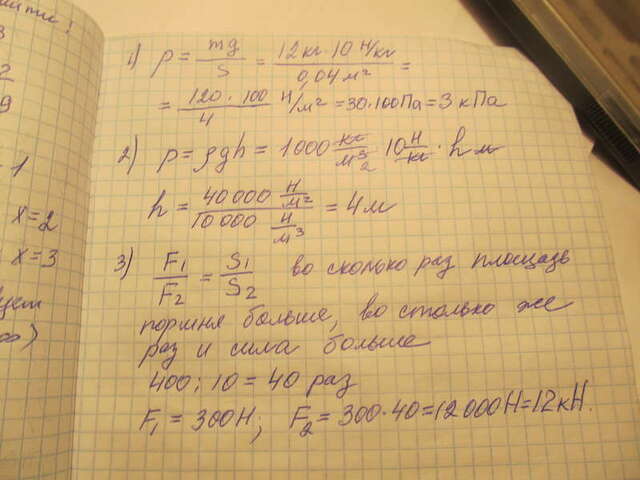 3
2
9
1
x=2
x=3
1) p = mg/S = 12 кг · 10 Н/кг / 0,04 м² =
= 120 · 100 / 4 Н/м² = 30·100 Па = 3 кПа
2) p = ρgh = 1000 кг/м³ · 10 Н/кг · h м
h = 40 000 Н/м² / 10 000 Н/м³ = 4 м
3) F₁/F₂ = S₁/S₂ во сколько раз площадь
поршня больше, во столько же
раз и сила больше
400 : 10 = 40 раз
F₁ = 300 Н; F₂ = 300·40 = 12 000 Н = 12 кН.